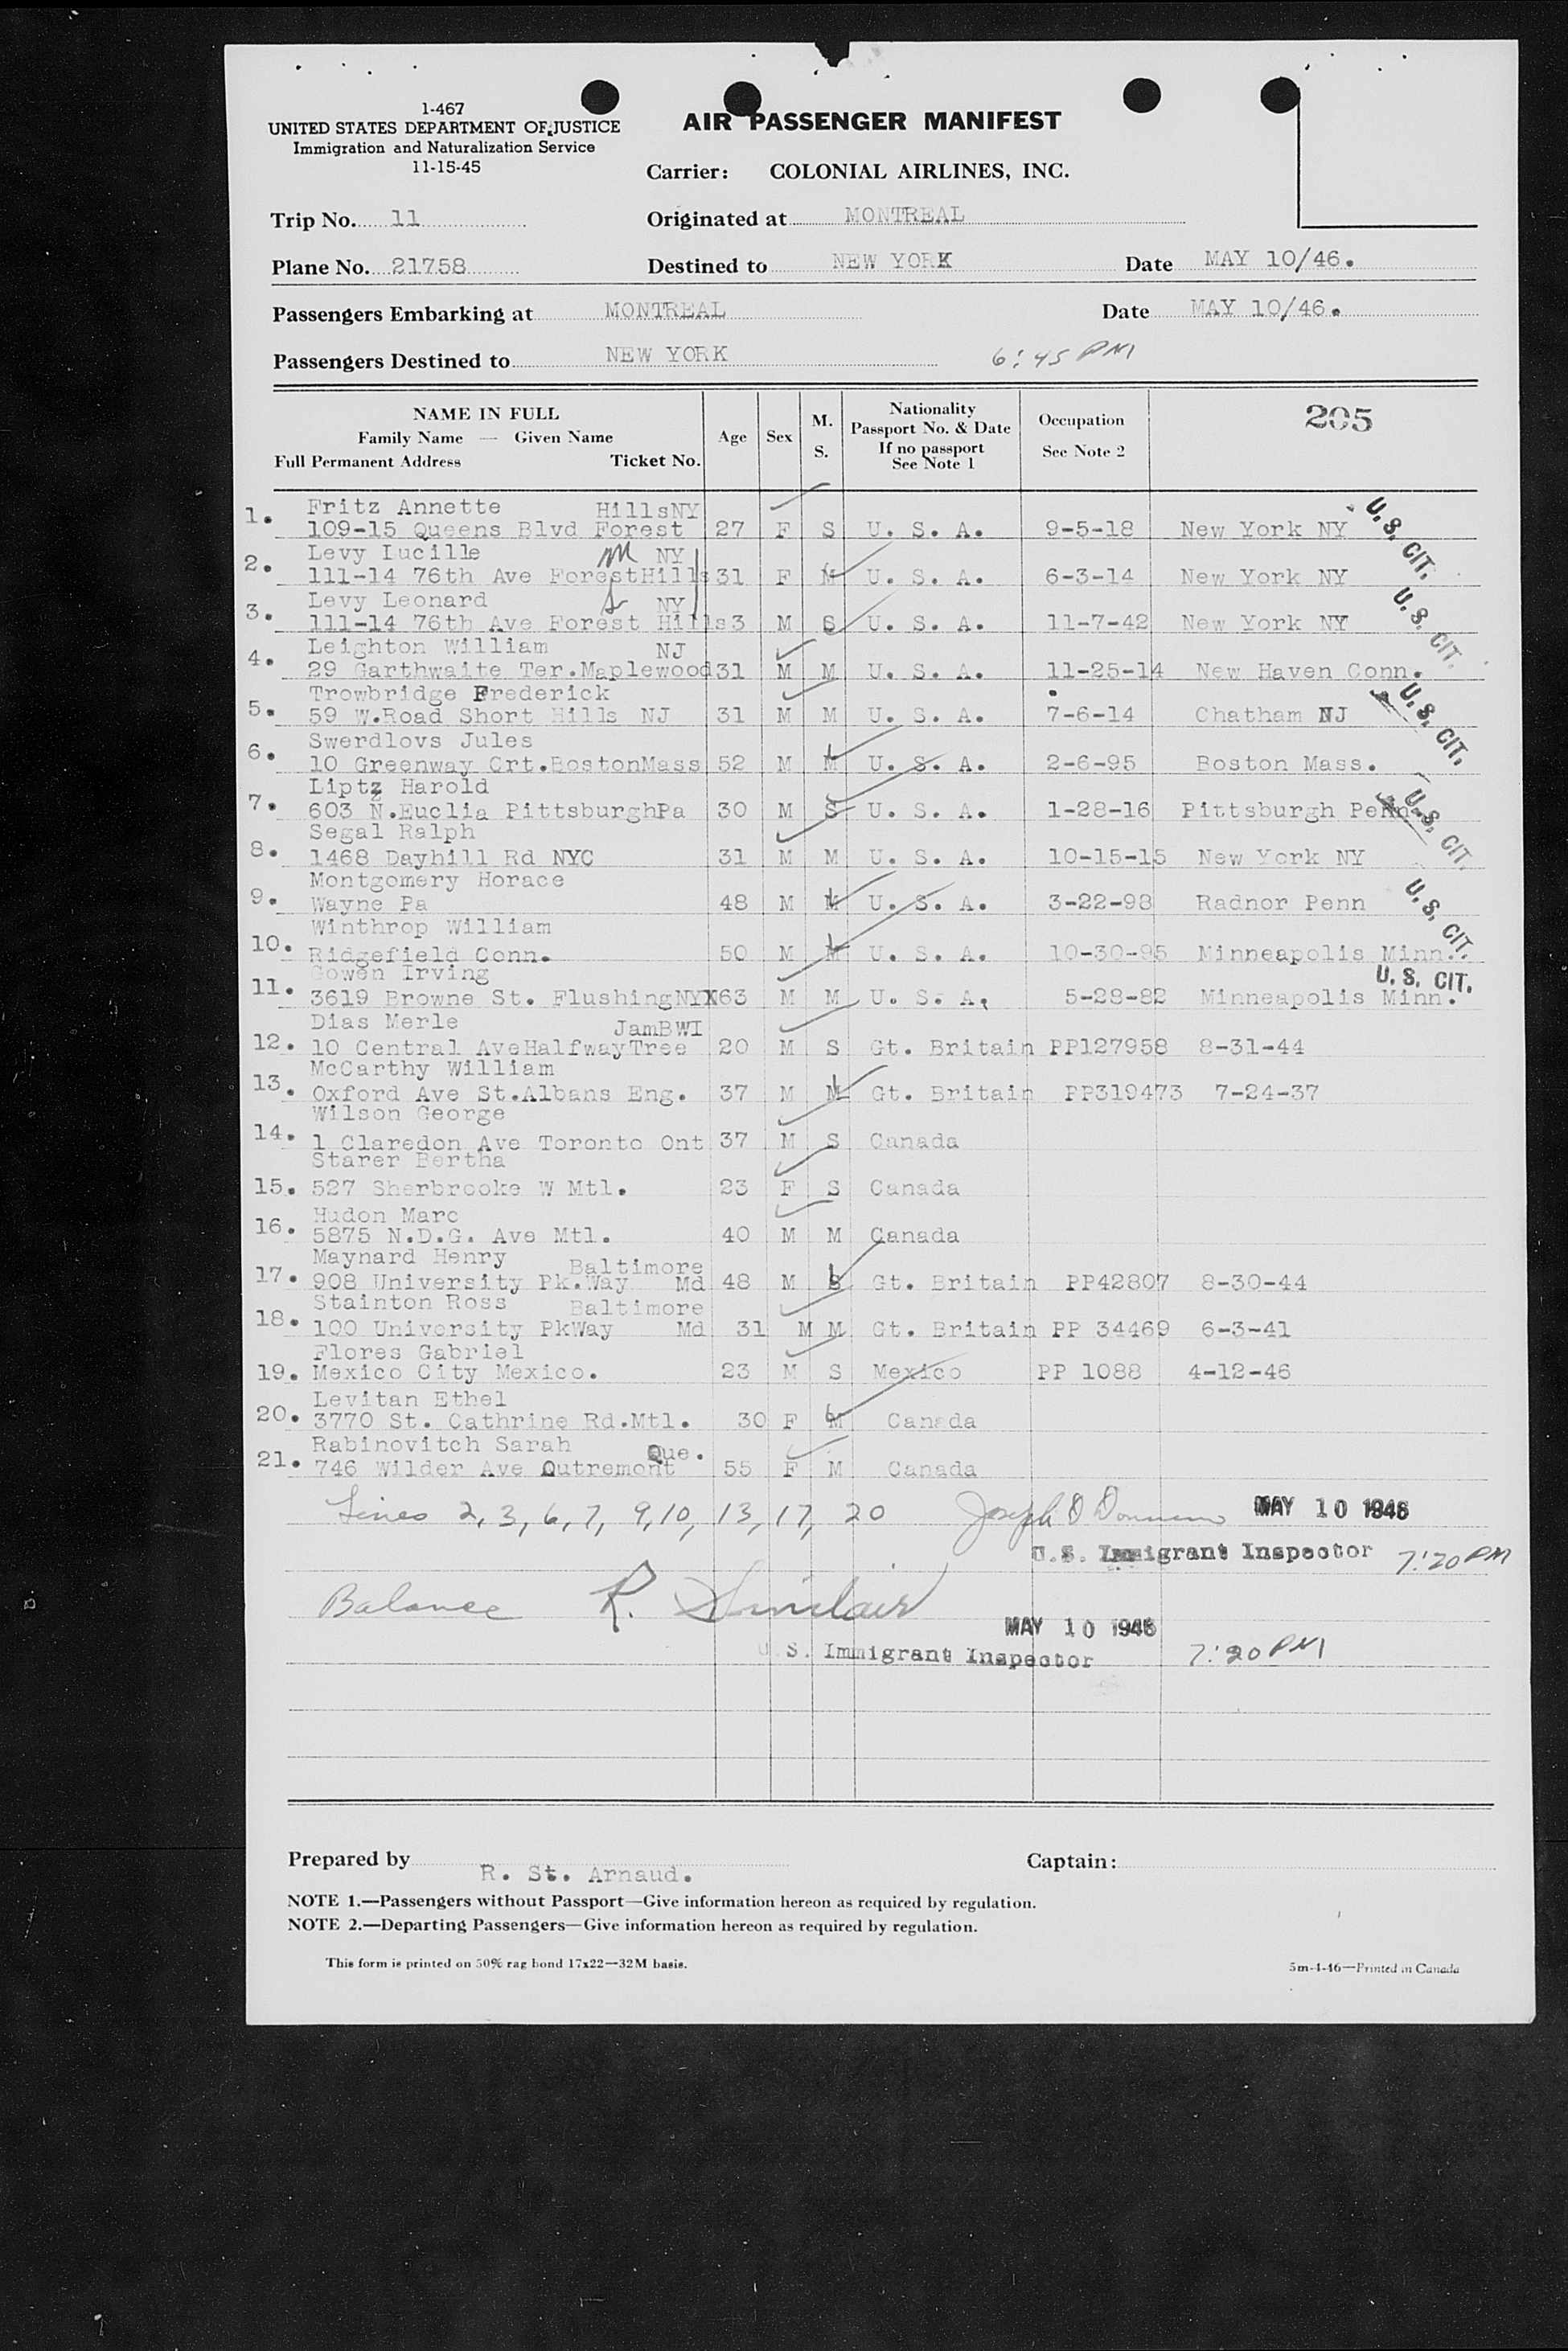 1-467
UNITED STATES DEPARTMENT OF JUSTICE
Immigration and Naturalization Service
11-15-45
AIR PASSENGER MANIFEST
Carrier: COLONIAL AIRLINES, INC.
Trip No. 11 Originated at MONTREAL
Plane No. 21758 Destined to NEW YORK Date MAY 10/46.
Passengers Embarking at MONTREAL Date MAY 10/46.
Passengers Destined to NEW YORK 6:45 PM
NAME IN FULL
Family Name — Given Name
Full Permanent Address Ticket No.
Age
Sex
M.
S.
Nationality
Passport No. & Date
If no passport
See Note 1
Occupation
See Note 2
205
Fritz Annette HillsNY
1. 109-15 Queens Blvd Forest 27 F S U. S. A. 9-5-18 New York NY U.S. CIT.
Levy Lucille M NY
2. 111-14 76th Ave ForestHills 31 F M U. S. A. 6-3-14 New York NY
Levy Leonard S NY
3. 111-14 76th Ave Forest Hills 3 M S U. S. A. 11-7-42 New York NY U.S. CIT.
Leighton William NJ
4. 29 Garthwaite Ter.Maplewood 31 M M U. S. A. 11-25-14 New Haven Conn.
Trowbridge Frederick
5. 59 W.Road Short Hills NJ 31 M M U. S. A. 7-6-14 Chatham NJ U.S. CIT.
Swerdlovs Jules
6. 10 Greenway Crt.BostonMass 52 M M U. S. A. 2-6-95 Boston Mass.
Liptz Harold
7. 603 N.Euclia PittsburghPa 30 M S U. S. A. 1-28-16 Pittsburgh Penn. U.S. CIT.
Segal Ralph
8. 1468 Dayhill Rd NYC 31 M M U. S. A. 10-15-15 New York NY
Montgomery Horace
9. Wayne Pa 48 M M U. S. A. 3-22-98 Radnor Penn U.S. CIT.
Winthrop William
10. Ridgefield Conn. 50 M M U. S. A. 10-30-95 Minneapolis Minn.
Gowen Irving
11. 3619 Browne St. FlushingNY 63 M M U. S. A. 5-28-82 Minneapolis Minn. U.S. CIT.
Dias Merle JamBWI
12. 10 Central AveHalfwayTree 20 M S Gt. Britain PP127958 8-31-44
McCarthy William
13. Oxford Ave St.Albans Eng. 37 M M Gt. Britain PP319473 7-24-37
Wilson George
14. 1 Claredon Ave Toronto Ont 37 M S Canada
Starer Bertha
15. 527 Sherbrooke W Mtl. 23 F S Canada
Hudon Marc
16. 5875 N.D.G. Ave Mtl. 40 M M Canada
Maynard Henry Baltimore
17. 908 University Pk.Way Md 48 M S Gt. Britain PP42807 8-30-44
Stainton Ross Baltimore
18. 100 University PkWay Md 31 M M Gt. Britain PP 34469 6-3-41
Flores Gabriel
19. Mexico City Mexico. 23 M S Mexico PP 1088 4-12-46
Levitan Ethel
20. 3770 St. Cathrine Rd.Mtl. 30 F M Canada
Rabinovitch Sarah Que.
21. 746 Wilder Ave Outremont 55 F M Canada
Lines 2, 3, 6, 7, 9, 10, 13, 17, 20 Joseph MAY 10 1946
U.S. Immigrant Inspector 7:20 PM
Balance R. Sinclair
MAY 10 1946
U.S. Immigrant Inspector 7:20 PM
Prepared by R. St. Arnaud. Captain:
NOTE 1.—Passengers without Passport—Give information hereon as required by regulation.
NOTE 2.—Departing Passengers—Give information hereon as required by regulation.
This form is printed on 50% rag bond 17x22—32M basis. 5m-4-46—Printed in Canada